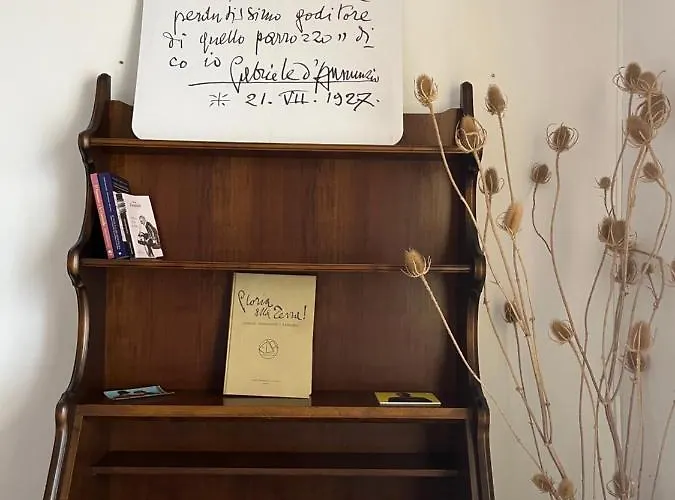 perdutissimo goditore
di quello parrozzo" di
co io Gabriele d'Annunzio
21. VII. 1927.
Gloria
alla Terra!